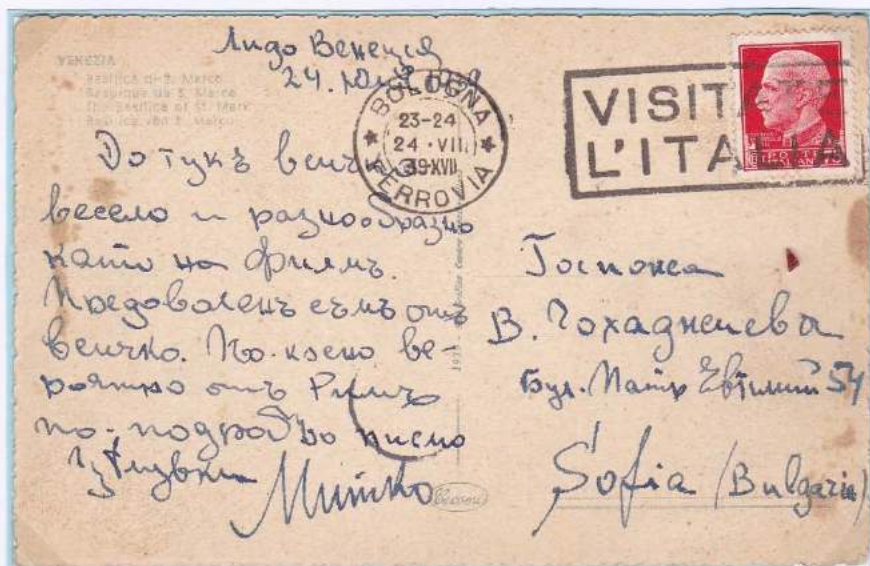 VENEZIA
Basilica di S. Marco
Basilique de S. Marco
The Basilica of St. Mark
Basilica von S. Marco
Лидо Венеция
24. Юлий
BOLOGNA
FERROVIA
23-24
24 · VII.
39-XVII
VISITATE
L'ITALIA
До тукъ всич
весело и разнообразно
като на филмъ.
Предоволенъ съмъ отъ
всичко. По-късно ве-
роятно отъ Римъ
по-подробно писмо
Цѣлувки
Митко
Госпожа
В.
Бул. Патр Евтимий 54
Sofia (Bulgaria)